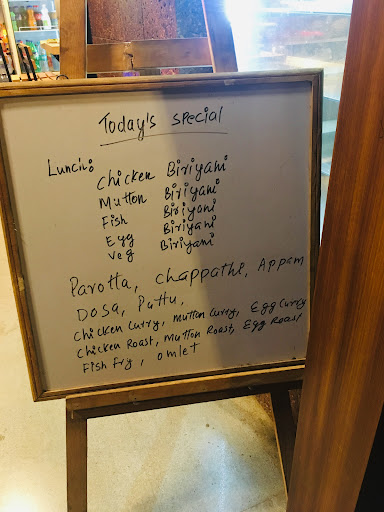 Today's special
Lunch:
Chicken Biriyani
Mutton Biriyani
Fish Biriyani
Egg Biriyani
Veg Biriyani
Parotta, Chappathi, Appam
Dosa, Puttu,
Chicken Curry, Mutton Curry, Egg Curry
Chicken Roast, Mutton Roast, Egg Roast
Fish Fry, omlet